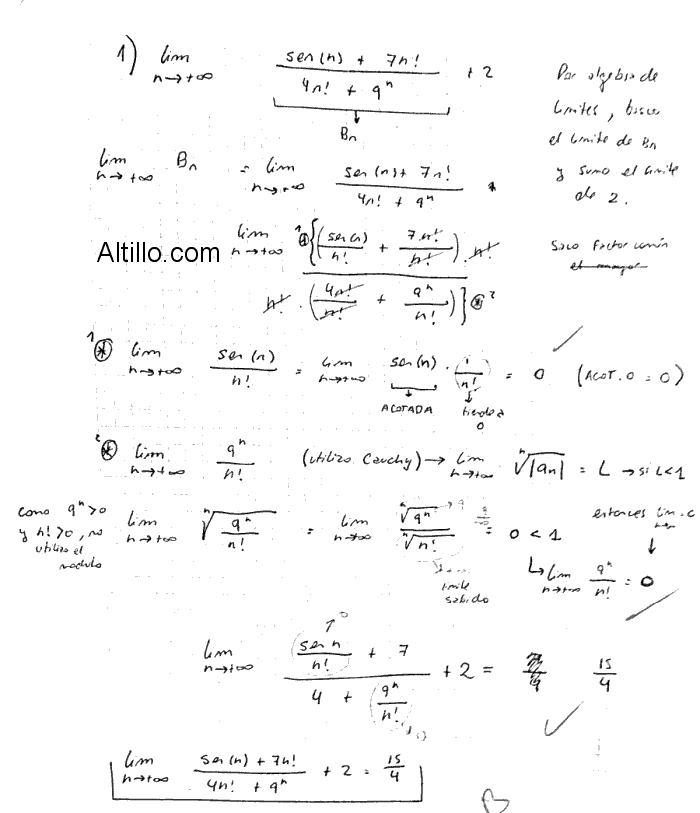 1) lim n→+∞ (sen(n) + 7n!) / (4n! + 9ⁿ) + 2
Bn
Por algebra de
limites, busco
el limite de Bn
y sumo el limite
de 2.
lim n→+∞ Bn = lim n→+∞ (sen(n) + 7n!) / (4n! + 9ⁿ)
Altillo.com
lim n→+∞ ¹⊛{(sen(n)/n! + 7n!/n!) . n! / n! . (4n!/n! + 9ⁿ/n!)}⊛²
Saco factor común
el mayor
¹⊛ lim n→+∞ sen(n)/n! = lim n→+∞ sen(n) . (1/n!) = 0 (ACOT. 0 = 0)
ACOTADA
tiende a
0
²⊛ lim n→+∞ 9ⁿ/n! (utilizo Cauchy) → lim n→+∞ ⁿ√|an| = L → si L<1
como 9ⁿ>0
y n!>0, no
utilizo el
modulo
lim n→+∞ ⁿ√(9ⁿ/n!) = lim n→+∞ ⁿ√9ⁿ / ⁿ√n! = 0 < 1
→9
9/+∞
→+∞
limite
sabido
entonces lim
↳ lim n→+∞ 9ⁿ/n! = 0
lim n→+∞ ((sen n/n!) + 7) / (4 + (9ⁿ/n!)) + 2 = 15/4
→0
→0
lim n→+∞ (sen(n) + 7n!) / (4n! + 9ⁿ) + 2 = 15/4
B